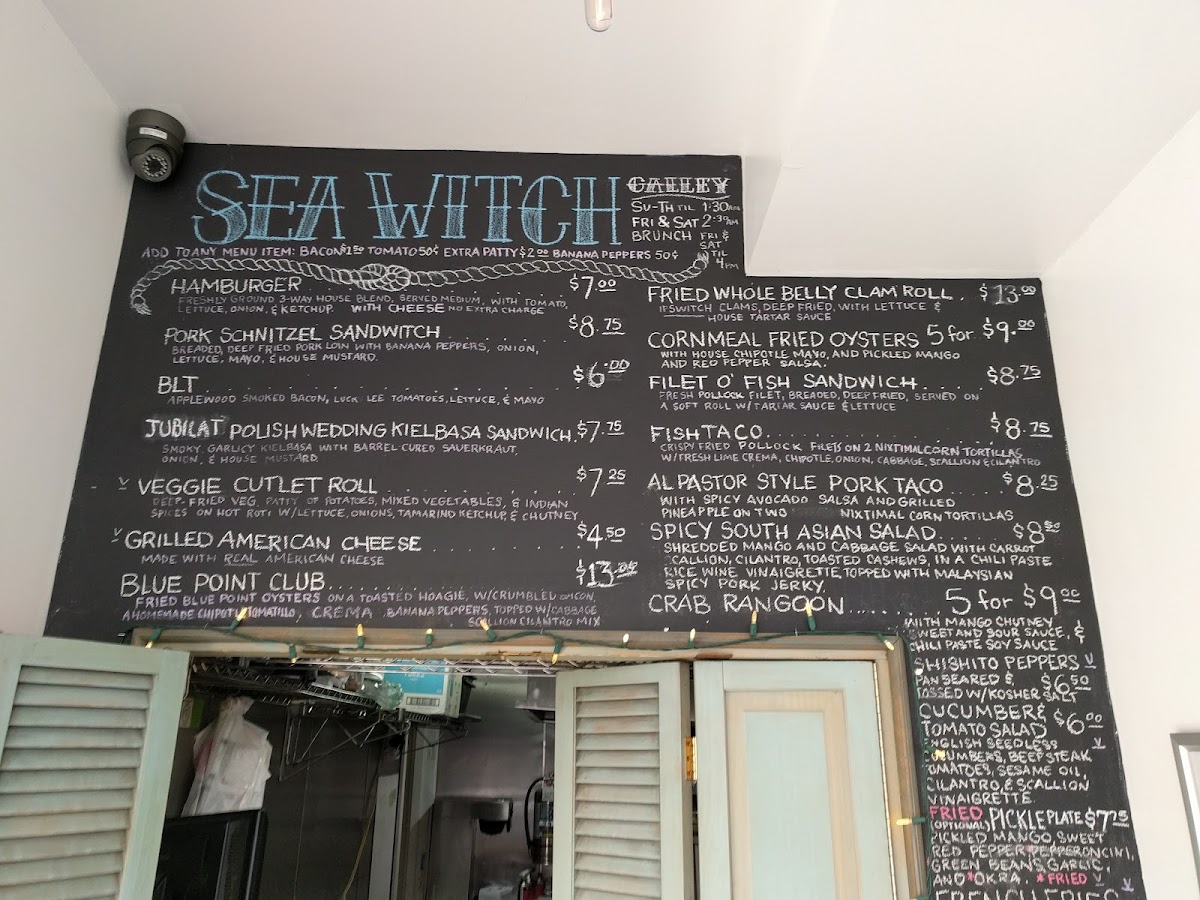 SEA WITCH
GALLEY
SU-TH TIL 1:30AM
FRI & SAT 2:30AM
BRUNCH FRI &
SAT
TIL
4PM
ADD TO ANY MENU ITEM: BACON $1.50 TOMATO 50¢ EXTRA PATTY $2.00 BANANA PEPPERS 50¢
HAMBURGER $7.00
FRESHLY GROUND 3-WAY HOUSE BLEND, SERVED MEDIUM, WITH TOMATO,
LETTUCE, ONION, & KETCHUP. WITH CHEESE NO EXTRA CHARGE
PORK SCHNITZEL SANDWITCH $8.75
BREADED, DEEP FRIED PORK LOIN WITH BANANA PEPPERS, ONION,
LETTUCE, MAYO, & HOUSE MUSTARD.
BLT $6.00
APPLEWOOD SMOKED BACON, LUCKY LEE TOMATOES, LETTUCE, & MAYO
JUBILAT POLISH WEDDING KIELBASA SANDWICH. $7.75
SMOKY GARLICY KIELBASA WITH BARREL CURED SAUERKRAUT,
ONION, & HOUSE MUSTARD
V VEGGIE CUTLET ROLL $7.25
DEEP-FRIED VEG. PATTY OF POTATOES, MIXED VEGETABLES, & INDIAN
SPICES ON HOT ROTI W/LETTUCE, ONIONS, TAMARIND KETCHUP, & CHUTNEY
V GRILLED AMERICAN CHEESE $4.50
MADE WITH REAL AMERICAN CHEESE
BLUE POINT CLUB $13.00
FRIED BLUE POINT OYSTERS ON A TOASTED HOAGIE, W/CRUMBLED BACON,
A HOMEMADE CHIPOTLE TOMATILLO, CREMA BANANA PEPPERS, TOPPED W/CABBAGE
SCALLION CILANTRO MIX
FRIED WHOLE BELLY CLAM ROLL. $13.00
IPSWITCH CLAMS, DEEP FRIED, WITH LETTUCE &
HOUSE TARTAR SAUCE
CORNMEAL FRIED OYSTERS 5 for $9.00
WITH HOUSE CHIPOTLE MAYO, AND PICKLED MANGO
AND RED PEPPER SALSA.
FILET O' FISH SANDWICH $8.75
FRESH POLLOCK FILET, BREADED, DEEP FRIED, SERVED ON
A SOFT ROLL W/TARTAR SAUCE & LETTUCE
FISH TACO $8.75
CRISPY FRIED POLLOCK FILETS ON 2 NIXTIMAL CORN TORTILLAS
W/FRESH LIME CREMA, CHIPOTLE, ONION, CABBAGE, SCALLION & CILANTRO
AL PASTOR STYLE PORK TACO $8.25
WITH SPICY AVOCADO SALSA AND GRILLED
PINEAPPLE ON TWO NIXTIMAL CORN TORTILLAS
SPICY SOUTH ASIAN SALAD $8.50
SHREDDED MANGO AND CABBAGE SALAD WITH CARROT
SCALLION, CILANTRO, TOASTED CASHEWS, IN A CHILI PASTE
RICE WINE VINAIGRETTE, TOPPED WITH MALAYSIAN
SPICY PORK JERKY.
CRAB RANGOON 5 for $9.00
WITH MANGO CHUTNEY
SWEET AND SOUR SAUCE, &
CHILI PASTE SOY SAUCE
SHISHITO PEPPERS V
PAN SEARED & $6.50
TOSSED W/KOSHER SALT
CUCUMBER & $6.00
TOMATO SALAD V
ENGLISH SEEDLESS
CUCUMBERS, BEEFSTEAK
TOMATOES, SESAME OIL,
CILANTRO, & SCALLION
VINAIGRETTE.
FRIED (OPTIONAL) PICKLE PLATE $7.25
PICKLED MANGO, SWEET
RED PEPPER* PEPPERONCINI,
GREEN BEANS, GARLIC,
AND *OKRA. *FRIED V
FRENCH FRIES V